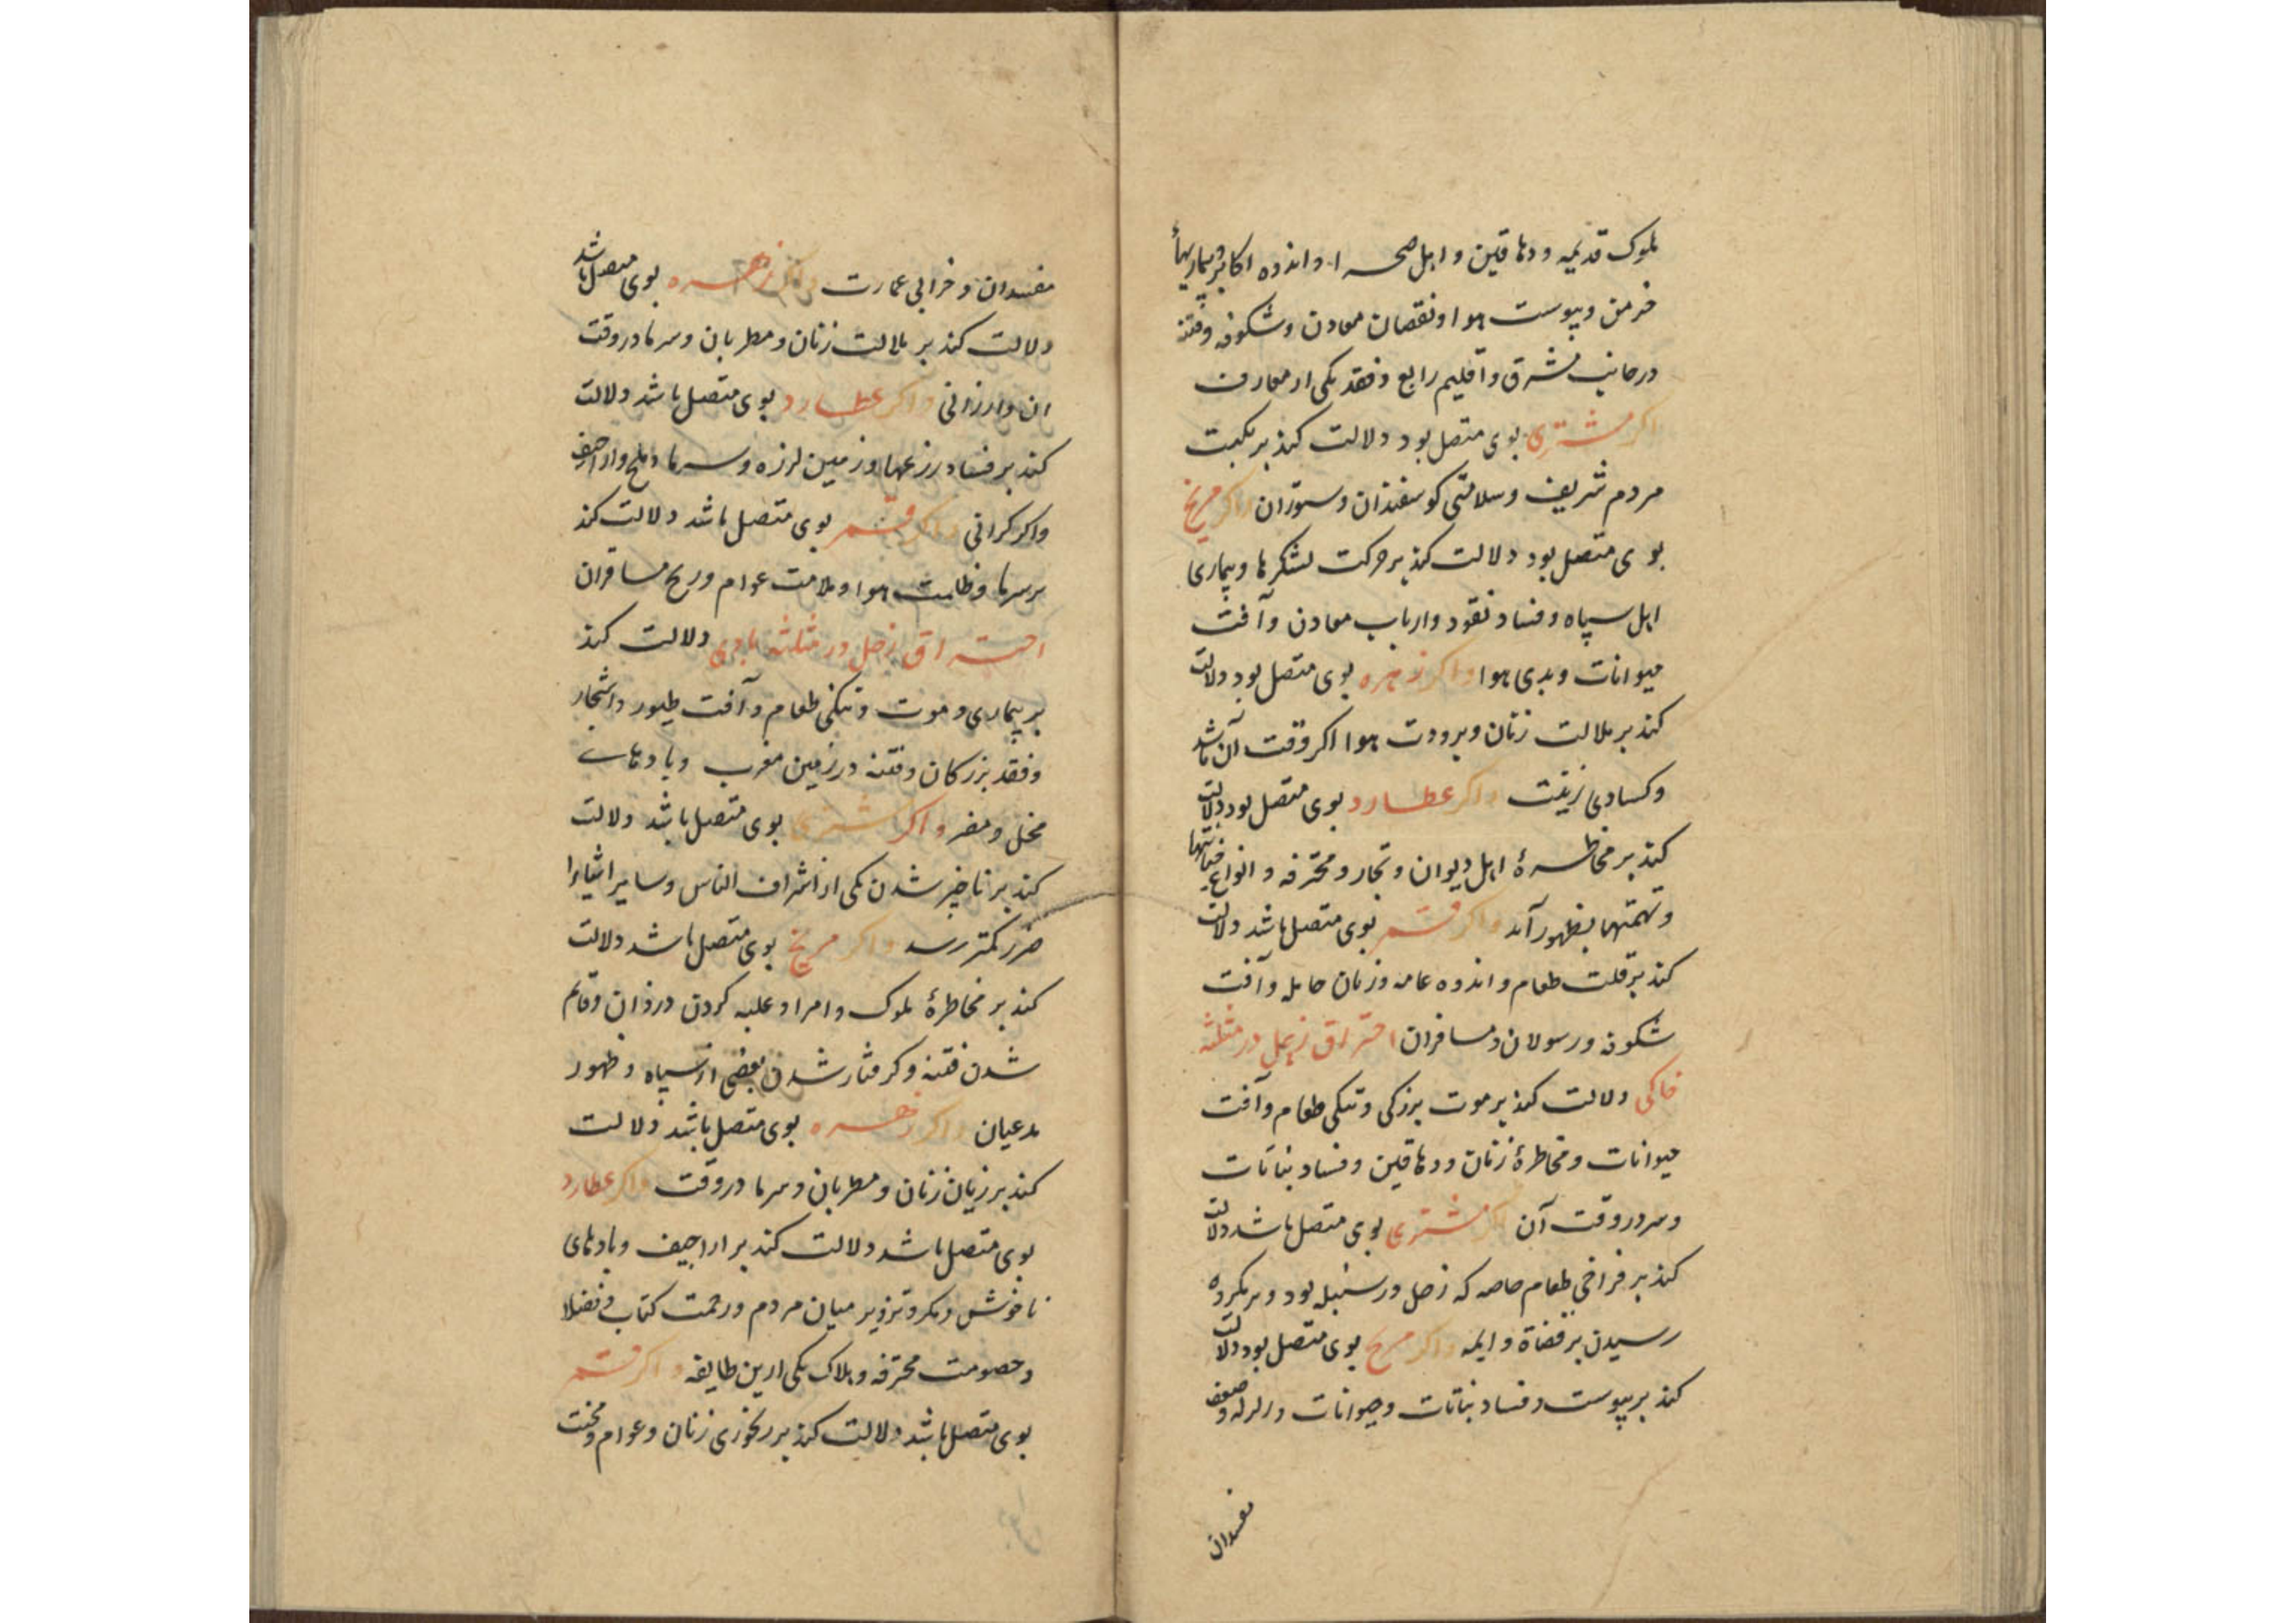 ملوک قدیمه ودهاقین واهل صحرا واندوه اکابر وبیماریهاٴ
خرمن ویبوست هوا ونقصان معادن وشکوفه وفتنه
درجانب مشرق واقلیم رابع وفقد یکی از معارف
اکر مشتری بوی متصل بود دلالت کند بر نکبت
مردم شریف وسلامتی کوسفندان وستوران واکر مریخ
بوی متصل بود دلالت کند بر حرکت لشکرها وبیماری
اهل سپاه وفساد نقود وارباب معادن وآفت
حیوانات وبدی هوا واکر زهره بوی متصل بود دلالت
کند بر ملالت زنان وبرودت هوا اکر وقت آن باشد
وکسادی زینت واکر عطارد بوی متصل بود دلالت
کند بر مخاطرهٔ اهل دیوان وتجار ومحترفه وانواع خیانتها
وتهمتها بظهور آید واکر قمر بوی متصل باشد دلالت
کند بر قلت طعام واندوه عامه وزنان حامله وآفت
شکوفه ورسولان ومسافران احتراق زحل در مثلثه
خاکی دلالت کند بر موت بزرکی وتنکی طعام وآفت
حیوانات ومخاطرهٔ زنان ودهاقین وفساد نباتات
وسرد روقت آن اکر مشتری بوی متصل باشد دلالت
کند بر فراخی طعام خاصه که زحل در سنبله بود وبر مکروه
رسیدن بر قضاة وایمه واکر مریخ بوی متصل بود دلالت
کند بر یبوست وفساد نباتات وحیوانات وزلزله وضعف
مفسدان
مفسدان وخرابی عمارت واکر زهره بوی متصل باشد
دلالت کند بر ملالت زنان ومطربان وسرما دروقت
ان وارزانی واکر عطارد بوی متصل باشد دلالت
کند بر فساد زرعها وزمین لرزه وسرما وملخ واراجیف
واکر کرانی واکر قمر بوی متصل باشد دلالت کند
بر سرما وظلمت هوا وملامت عوام ورنج مسافران
احتراق زحل در مثلثه بادی دلالت کند
بر بیماری وموت وتنکی طعام وآفت طیور واشجار
وفقد بزرکان وفتنه در زمین مغرب وبادهاے
مخل ومضر واکر مشتری بوی متصل باشد دلالت
کند بر ناچیز شدن یکی از اشراف الناس وسایر اشیا را
ضرر کمتر رسد واکر مریخ بوی متصل باشد دلالت
کند بر مخاطرهٔ ملوک وامرا وغلبه کردن دزدان وقایم
شدن فتنه وکرفتار شدن بعضی از سپاه وظهور
مدعیان واکر زهره بوی متصل باشد دلالت
کند بر زیان زنان ومطربان وسرما دروقت واکر عطارد
بوی متصل باشد دلالت کند بر اراجیف وبادهای
ناخوش ومکر وتزویر میان مردم وزحمت کتاب وفضلا
وخصومت محترفه وهلاک یکی ازین طایفه واکر قمر
بوی متصل باشد دلالت کند بر رنجوری زنان وعوام ومحنت